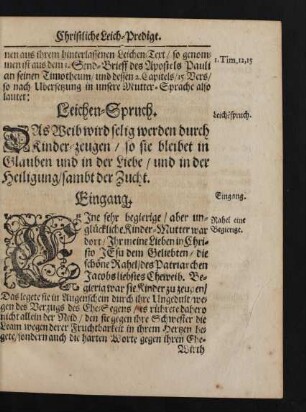 Christliche Leich-Predigt.
nen aus ihrem hinterlaßenen Leichen-Text/ so genom
men ist aus dem 1. Send-Brieff des Apostels Pauli
an seinen Timotheum/ und dessen 2. Capitels/15 Vers/
so nach Ubersetzung in unsere Mutter-Sprache also
lautet:
1. Tim, 2, 15
Leichen-Spruch.
Leichspruch.
DAs Weib wird selig werden durch
Kinder-zeugen/ so sie bleibet in
Glauben und in der Liebe/ und in der
Heiligung/ sambt der Zucht.
Eingang.
Eingang.
EIne sehr begierige/ aber un-
glückliche Kinder-Mutter war
dort/ Ihr meine Lieben in Chri-
sto JEsu dem Geliebten/ die
schöne Rahel/ des Patriarchen
Jacobs liebstes Eheweib. Be-
gierig war sie Kinder zu zeugen/
Rahel eine
Begierige.
Das legete sie in Augenschein durch ihre Ungedult/ we-
gen des Verzugs des Ehe-Segens/ es rührete dahero
nicht allein der Neid/ den sie gegen ihre Schwester die
Leam wegen derer Fruchtbarkeit in ihrem Hertzen he-
gete/ sondern auch die harten Worte gegen ihren Ehe-
Wirth